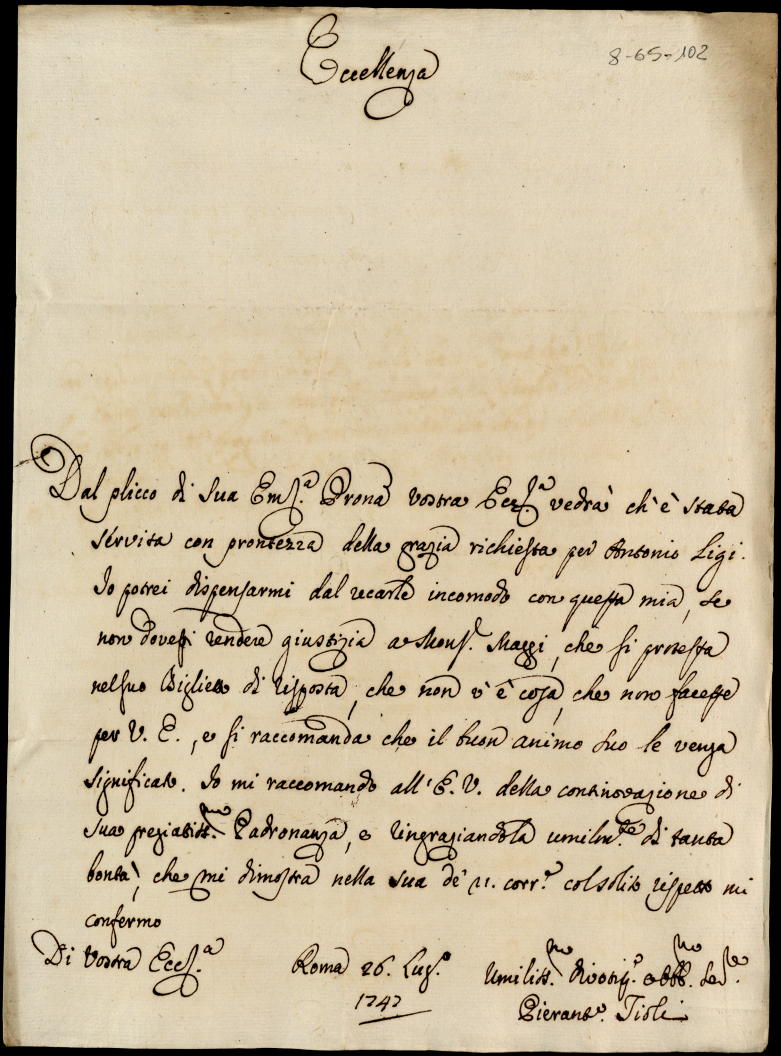 8-65-102
Eccellenza
Dal plicco di Sua Em.ª Prona Vostra Ecc.ª vedrà ch'è stata
servita con prontezza della grazia richiesta per Antonio Ligi.
Io potrei dispensarmi dal recarle incomodo con questa mia, se
non dovessi rendere giustizia a Mons.r Maggi, che si protesta
nel suo Biglietto di risposta, che non v'è cosa, che non facesse
per V. E., e si raccomanda che il buon animo suo le venga
significato. Io mi raccomando all'E. V. della continovazione di
sua pregiatiss.ma Padronanza, e ringraziandola umilm.te di tanta
bontà, che mi dimostra nella sua de' 21. corr.e col solito rispetto mi
confermo
Di Vostra Ecc.ª
Roma 26. Lug.o
1747
Umiliss.mo divotis.o obb.mo Ser.e
Pierant.o Tioli